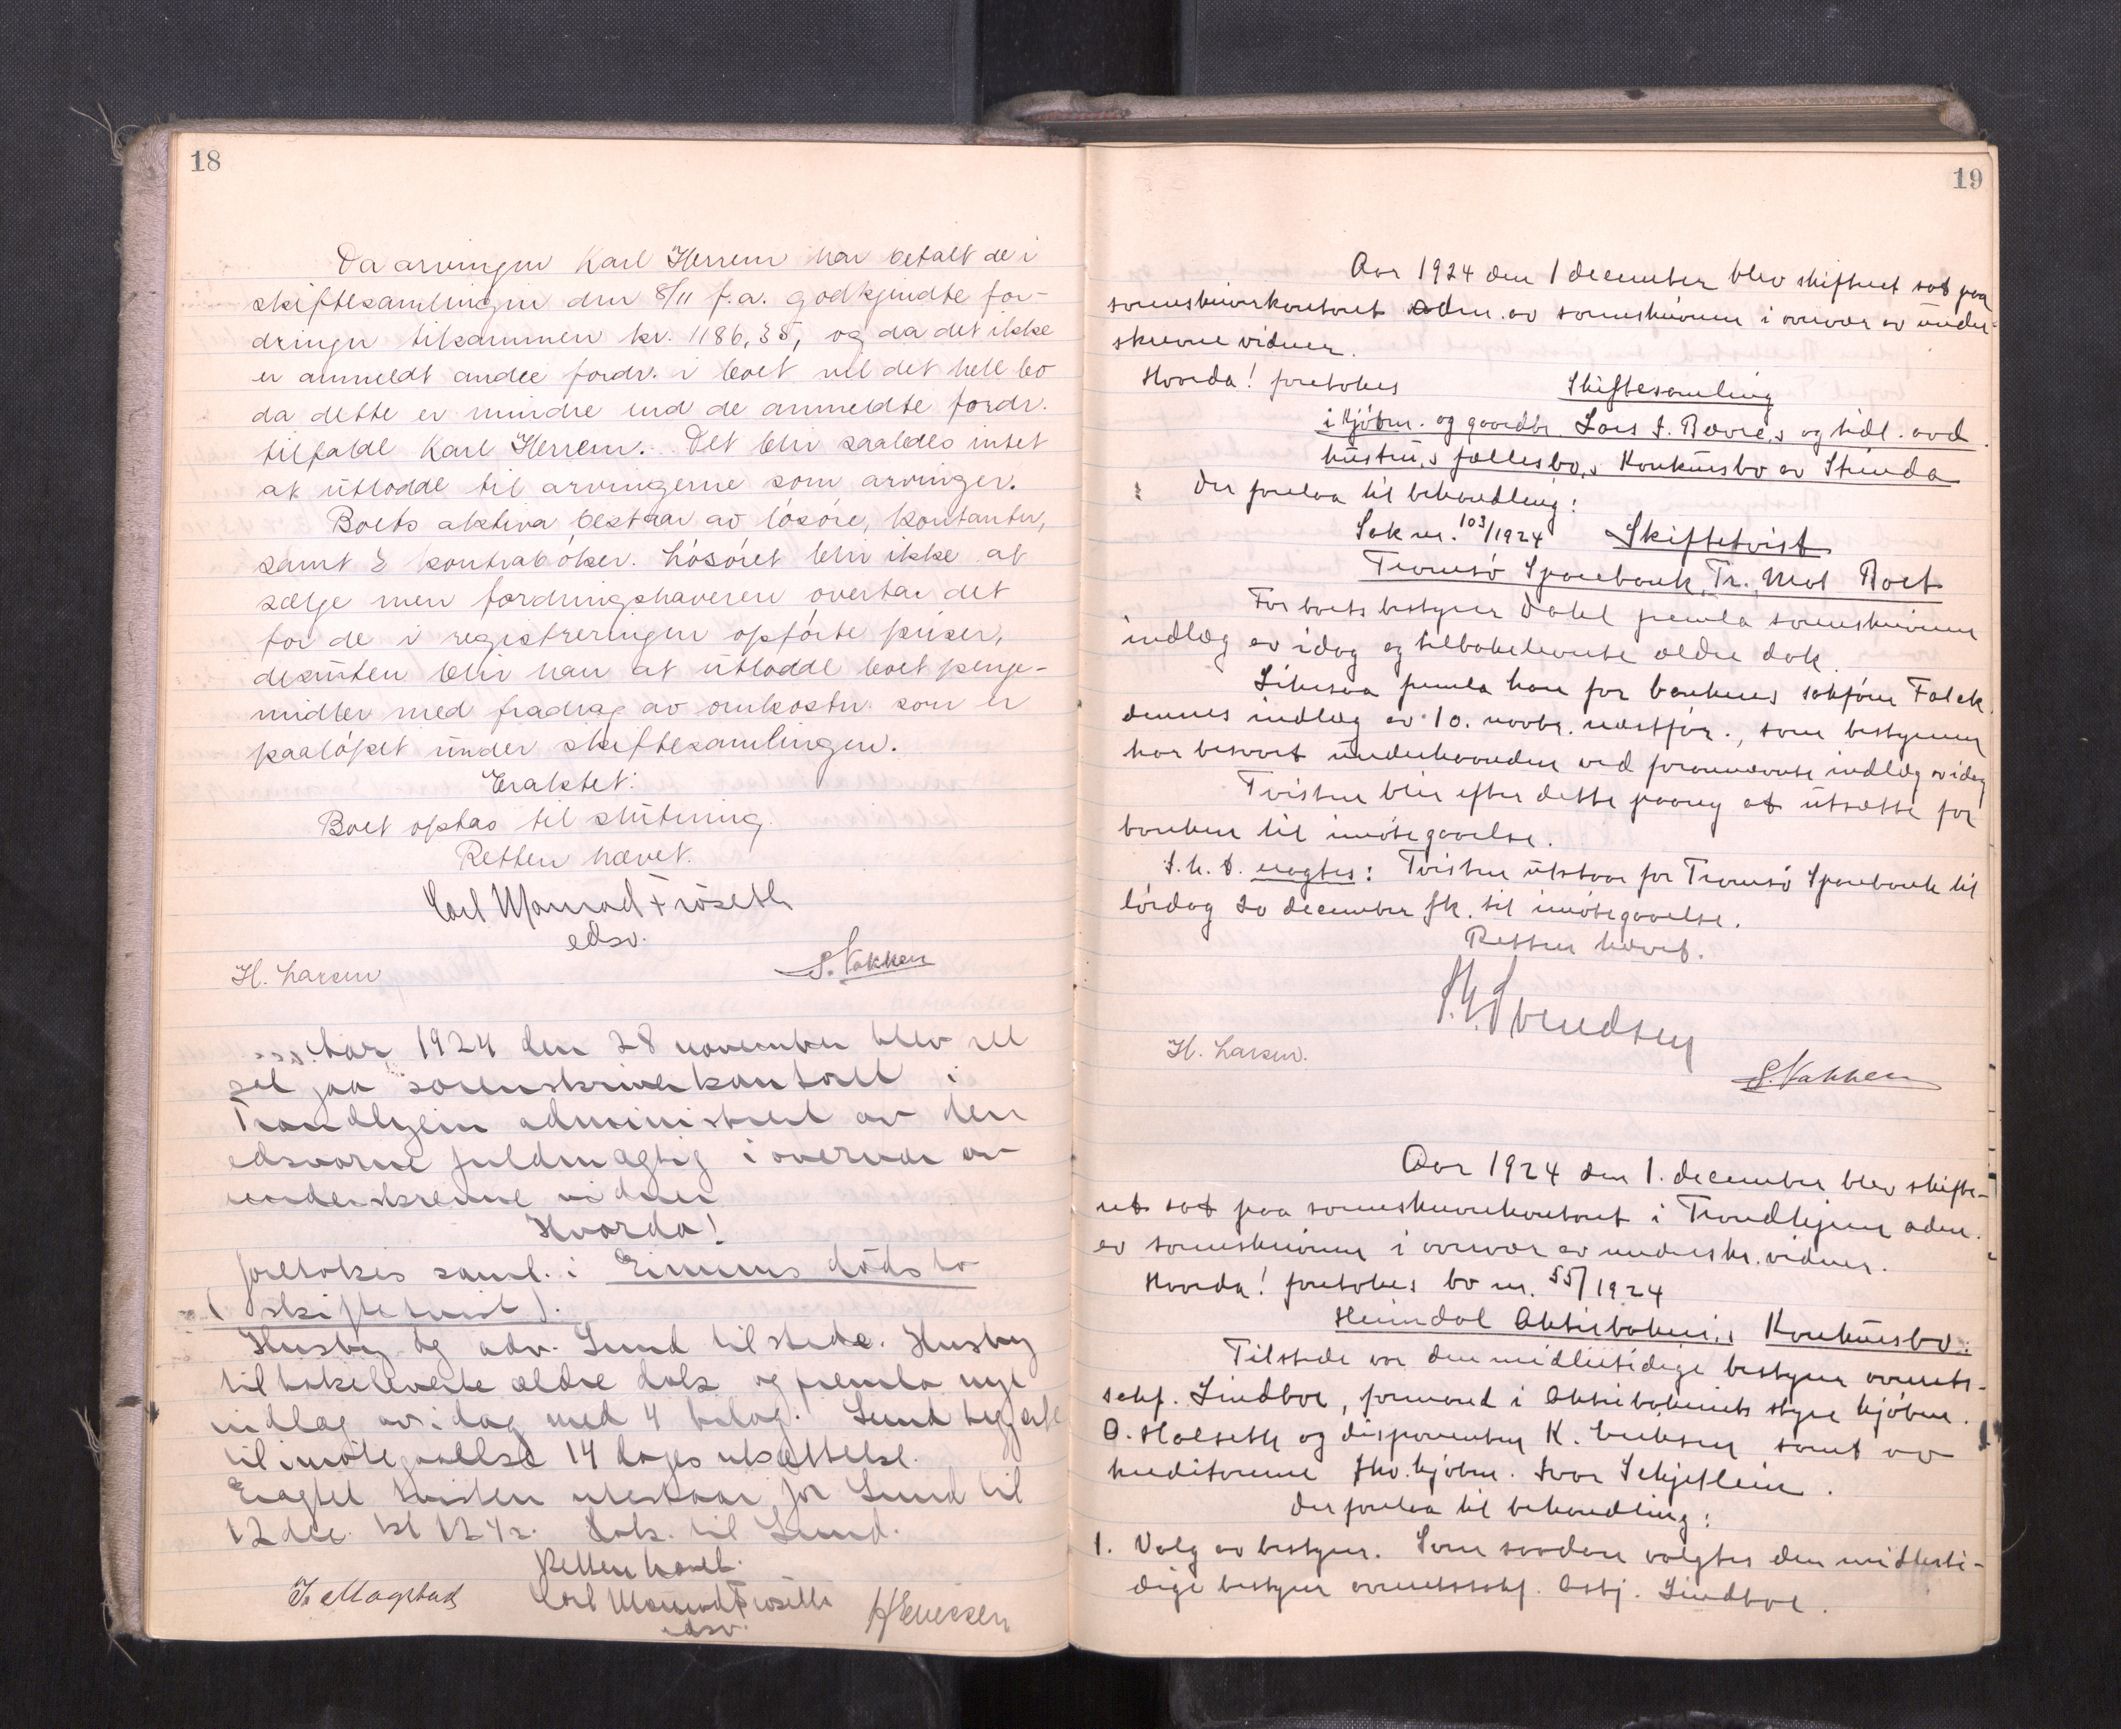 18
Da arvingen Karl Herrem har betalt de i
skiftesamlingen den 8/11 f.a. godkjendte for-
dringer tilsammen kr. 1186,35, og da det ikke
er anmeldt andre fordr. i boet vil det hele bo
da dette er mindre end de anmeldte fordr.
tilfalde Karl Herrem. Det blir saaledes intet
at utlodde til arvingerne som arvinger.
Boets aktiva bestaar av løsøre, kontanter,
samt 2 kontrabøker. Løsøret blir ikke at
sælge men fordringshaveren overtar det
for de i registreringen opførte priser,
desuten blir han at utlodde boets penge-
midler med fradrag av omkostn. som er
paaløpet under skiftesamlingen.
Eragtet:
Boet optas til slutning.
Retten hævet.
Carl Monrad Frøseth
edsv.
H. Larsen
S. Nakken
Aar 1924 den 28 november blev ret
sat paa sorenskriverkontoret i
Trondhjem administrert av den
edsvorne fuldmægtig i overvær av
underskrevne vidner
Hvorda!
foretokes saml. i Einums dødsbo
(skiftetvist).
Husby og adv. Lund tilstede. Husby
tilbakeleverte ældre dok og fremla nye
indlæg av idag med 4 bilag. Lund begjærte
til imøtegaaelse 14 dages utsættelse.
Eragtet tvisten utestaar for Lund til
12 dec. kl 12 1/2. Dok. til Lund.
Retten hævet.
Carl Monrad Frøseth
edsv.
J. Magstad
H Evensen
19
Aar 1924 den 1 december blev skifteret sat paa
sorenskriverkontoret adm. av sorenskriveren i overvær av under-
skrevne vidner.
Hvorda! foretokes Skiftesamling
i kjøbm. og gaardbr. Lars J. Bævres og tidl. avd
hustrus fællesbos Konkursbo av Strinda
Der forelaa til behandling:
Sak nr. 103/1924 Skiftetvist
Tromsø Sparebank, Tr., mot Boet
For boets bestyrer Dahl fremla sorenskriveren
indlæg av idag og tilbakeleverte ældre dok.
Likesaa fremla han for bankens sakfører Falck
dennes indlæg av 10. novbr. næstfør., som bestyreren
har besvart underhaanden ved forannævnte indlæg av idag
Tvisten blir efter dette paany at utsætte for
banken til imøtegaaelse.
S.h.t. eragtes: Tvisten utstaar for Tromsø Sparebank til
lørdag 20 december fk. til imøtegaaelse.
Retten hævet.
Svendsen
H. Larsen.
S. Nakken
Aar 1924 den 1. december blev skifte-
ret sat paa sorenskriverkontoret i Trondhjem adm.
av sorenskriveren i overvær av underskr. vidner.
Hvorda! foretokes bo nr. 55/1924
Heimdal Aktiebakeris Konkursbo:
Tilstede var den midlertidige bestyrer overrets-
sakf. Lindboe, formand i Aktiebakeriets styre kjøbm.
O. Halseth og disponenten K. Eriksen samt av
kreditorerne fhv. kjøbm. Ivar Skjetlein.
Der forelaa til behandling:
1. Valg av bestyrer. Som saadan valgtes den midlerti-
dige bestyrer overretssakf. Asbj. Lindboe.